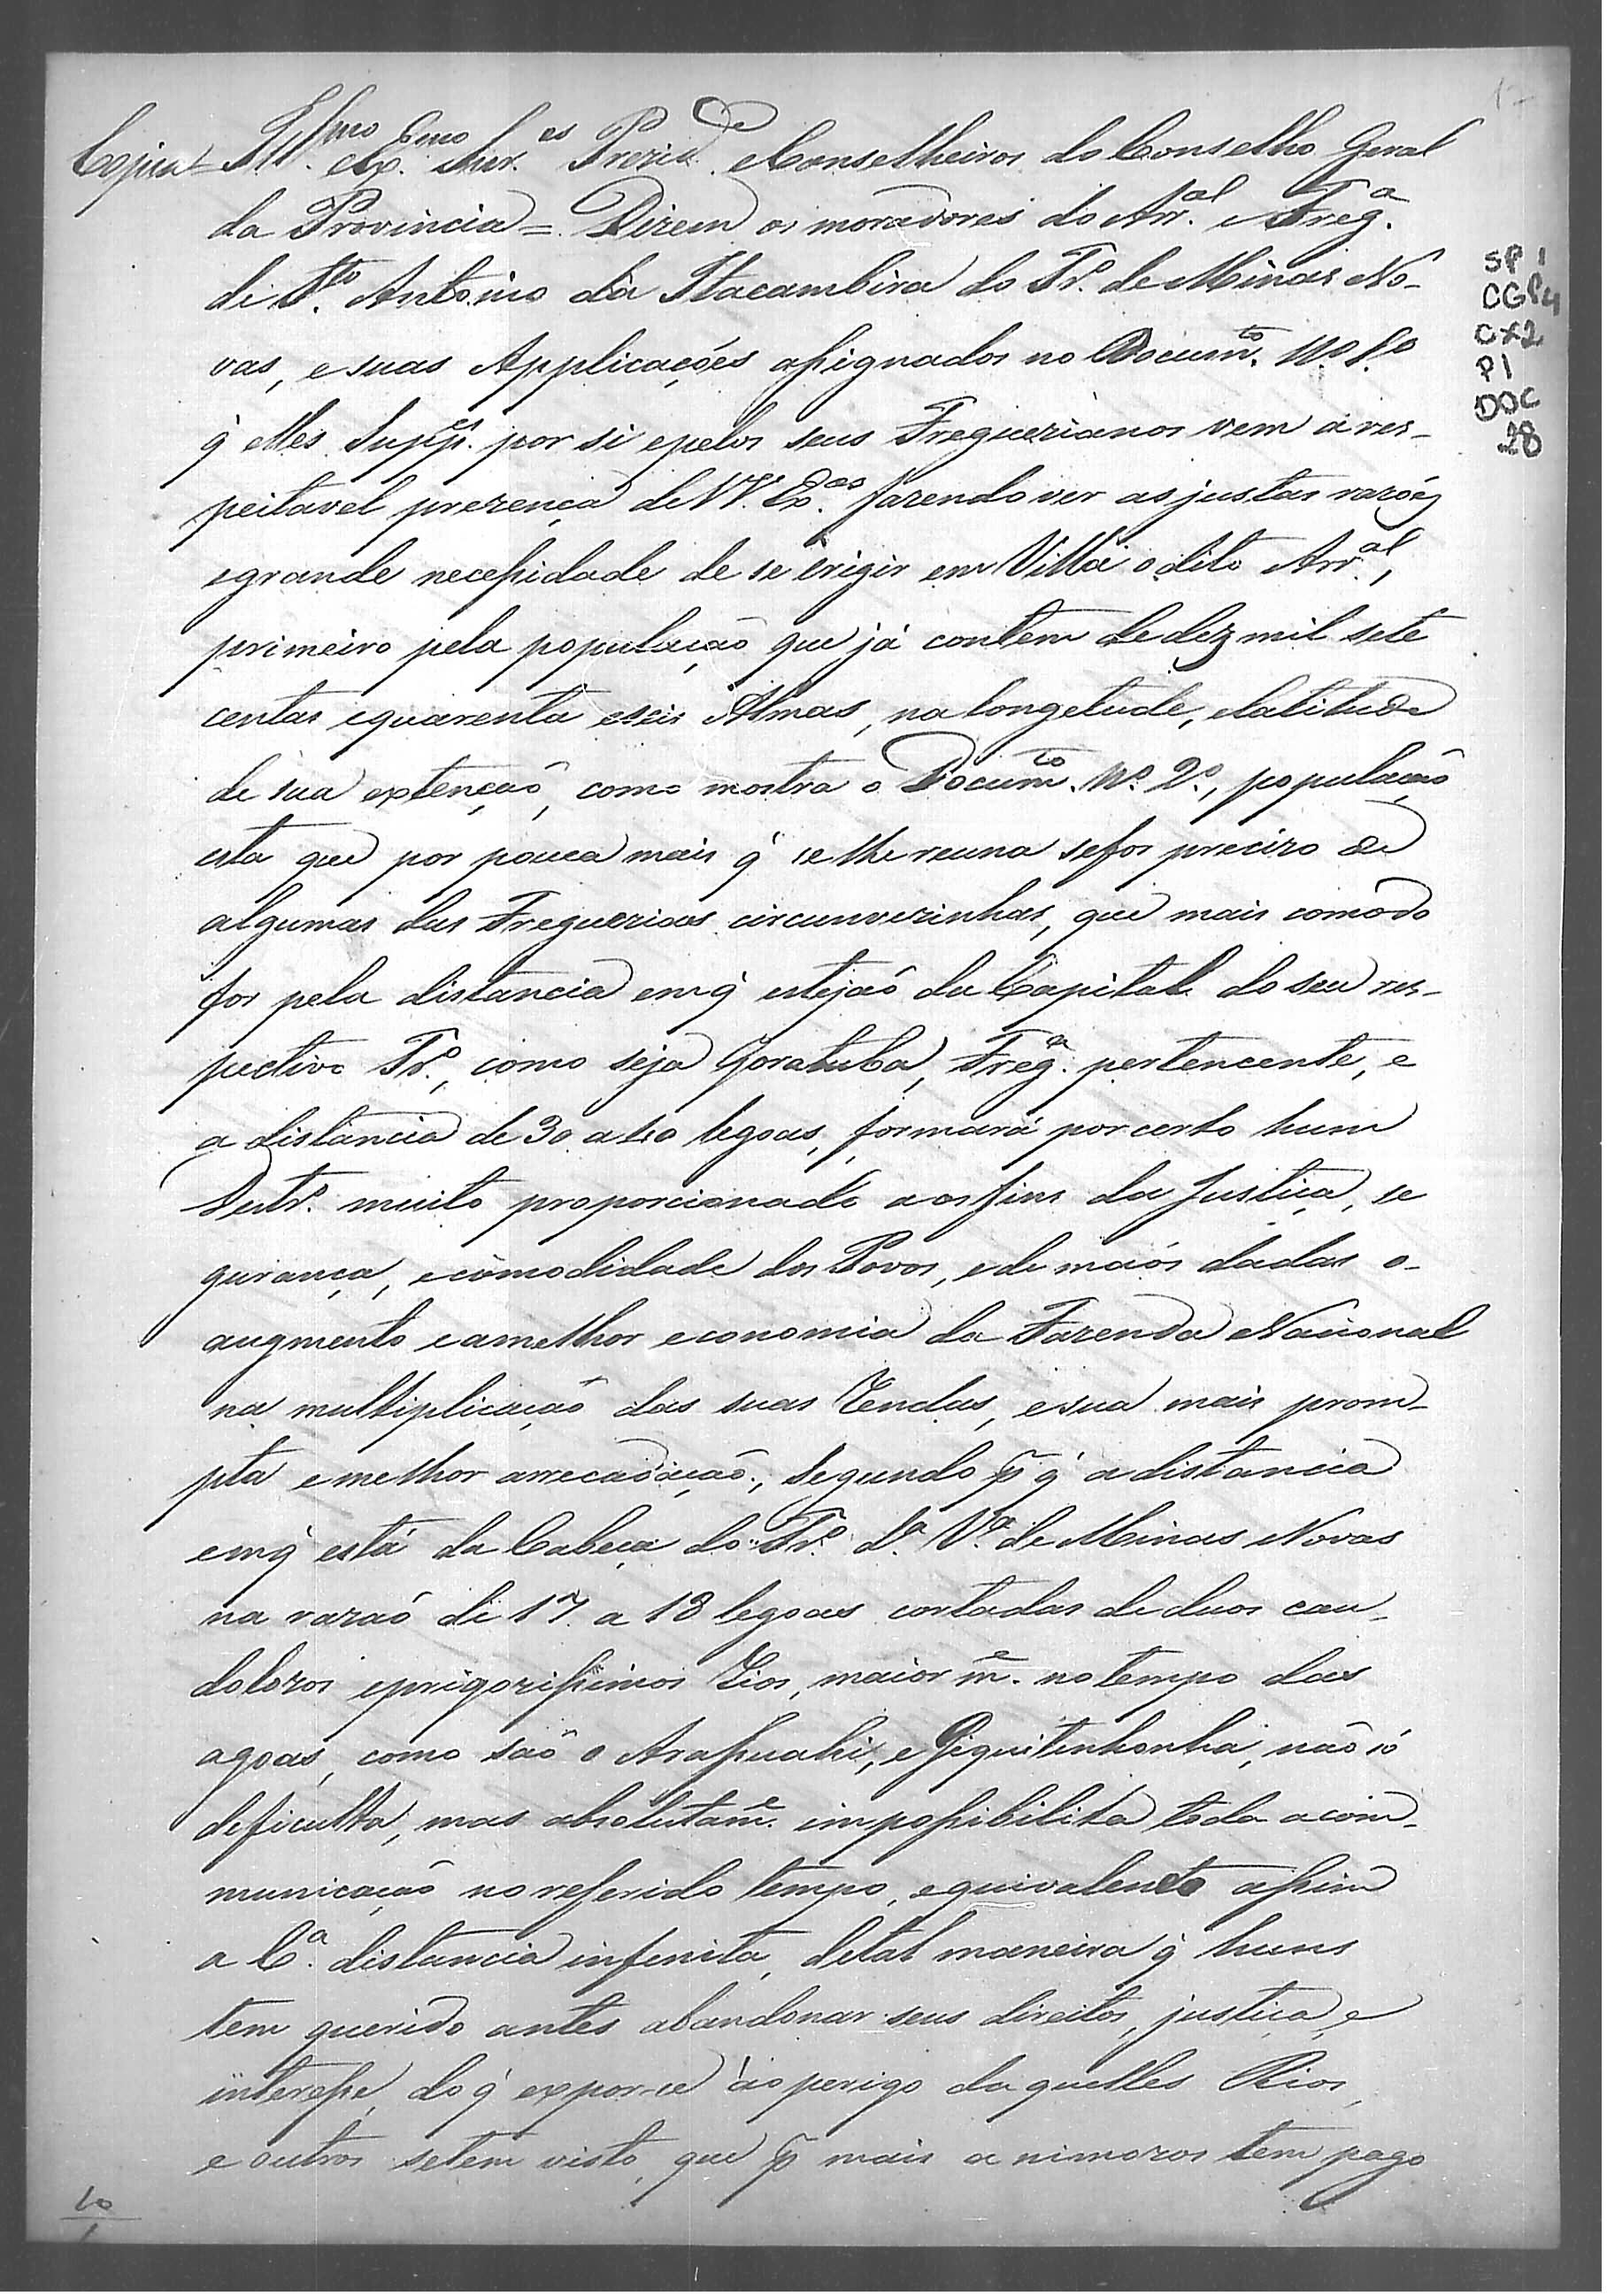 Copia = Ill.mo Ex.mo Snr.es Prezid.e e Conselheiros do Conselho Geral
da Provincia = Dizem os moradores do Arr.al e Freg.a
de S.to Antonio da Itacambira do Tr.o de Minas No-
vas, e suas Applicações assignados no Docum.to N.o 1.o
q̃ elles Supp.es por si e pelos seus Freguezianos vem a res-
peitavel prezença de VV. Ex.as fazendo ver as justas razões
e grande necessidade de se erigir em Villa o dito Arr.al,
primeiro pela população que já contem de dez mil sete
centas e quarenta e seis Almas, na longetude, e latitude
de sua extenção, como mostra o Docum.to N.o 2.o, população
esta que por pouca mais q̃ se lhe reuna se for precizo de
algumas das Freguezias circunvezinhas, que mais comodo
for pela distancia em q̃ estejão da Capital do seu res-
pectivo Tr.o, como seja Gorutuba, Freg.a pertencente, e
a distancia de 30 a 40 legoas, formará por certo hum
Destr.o muito proporcionado aos fins da Justiça, se
gurança, e cõmodidade dos Povos, e de mãos dadas o
augmento e a melhor economia da Fazenda Nacional
na multiplicação das suas Rendas, e sua mais prom-
pta e melhor arrecadação; Segundo p q̃ a distancia
em q̃ está da Cabeça do Tr.o d.a V.a de Minas Novas
na razão de 17 a 18 legoas cortadas de duos cau-
dolozos e prigozissimos Rios, maior m.e no tempo das
agoas, como são o Arassuahi, e Giquitinhonha, não só
deficulta, mas absolutam.e impossibilita toda a com-
municação no referido tempo, equivalendo assim
a C.a distancia infenita, de tal maneira q̃ huns
tem querido antes abandonar seus direitos, justiça, e
interesse, do q̃ expor-se ao perigo daquelles Rios,
e outros se tem visto, que p mais animozos tem pago
SP 1
CGP4
CX2
P1
DOC
28